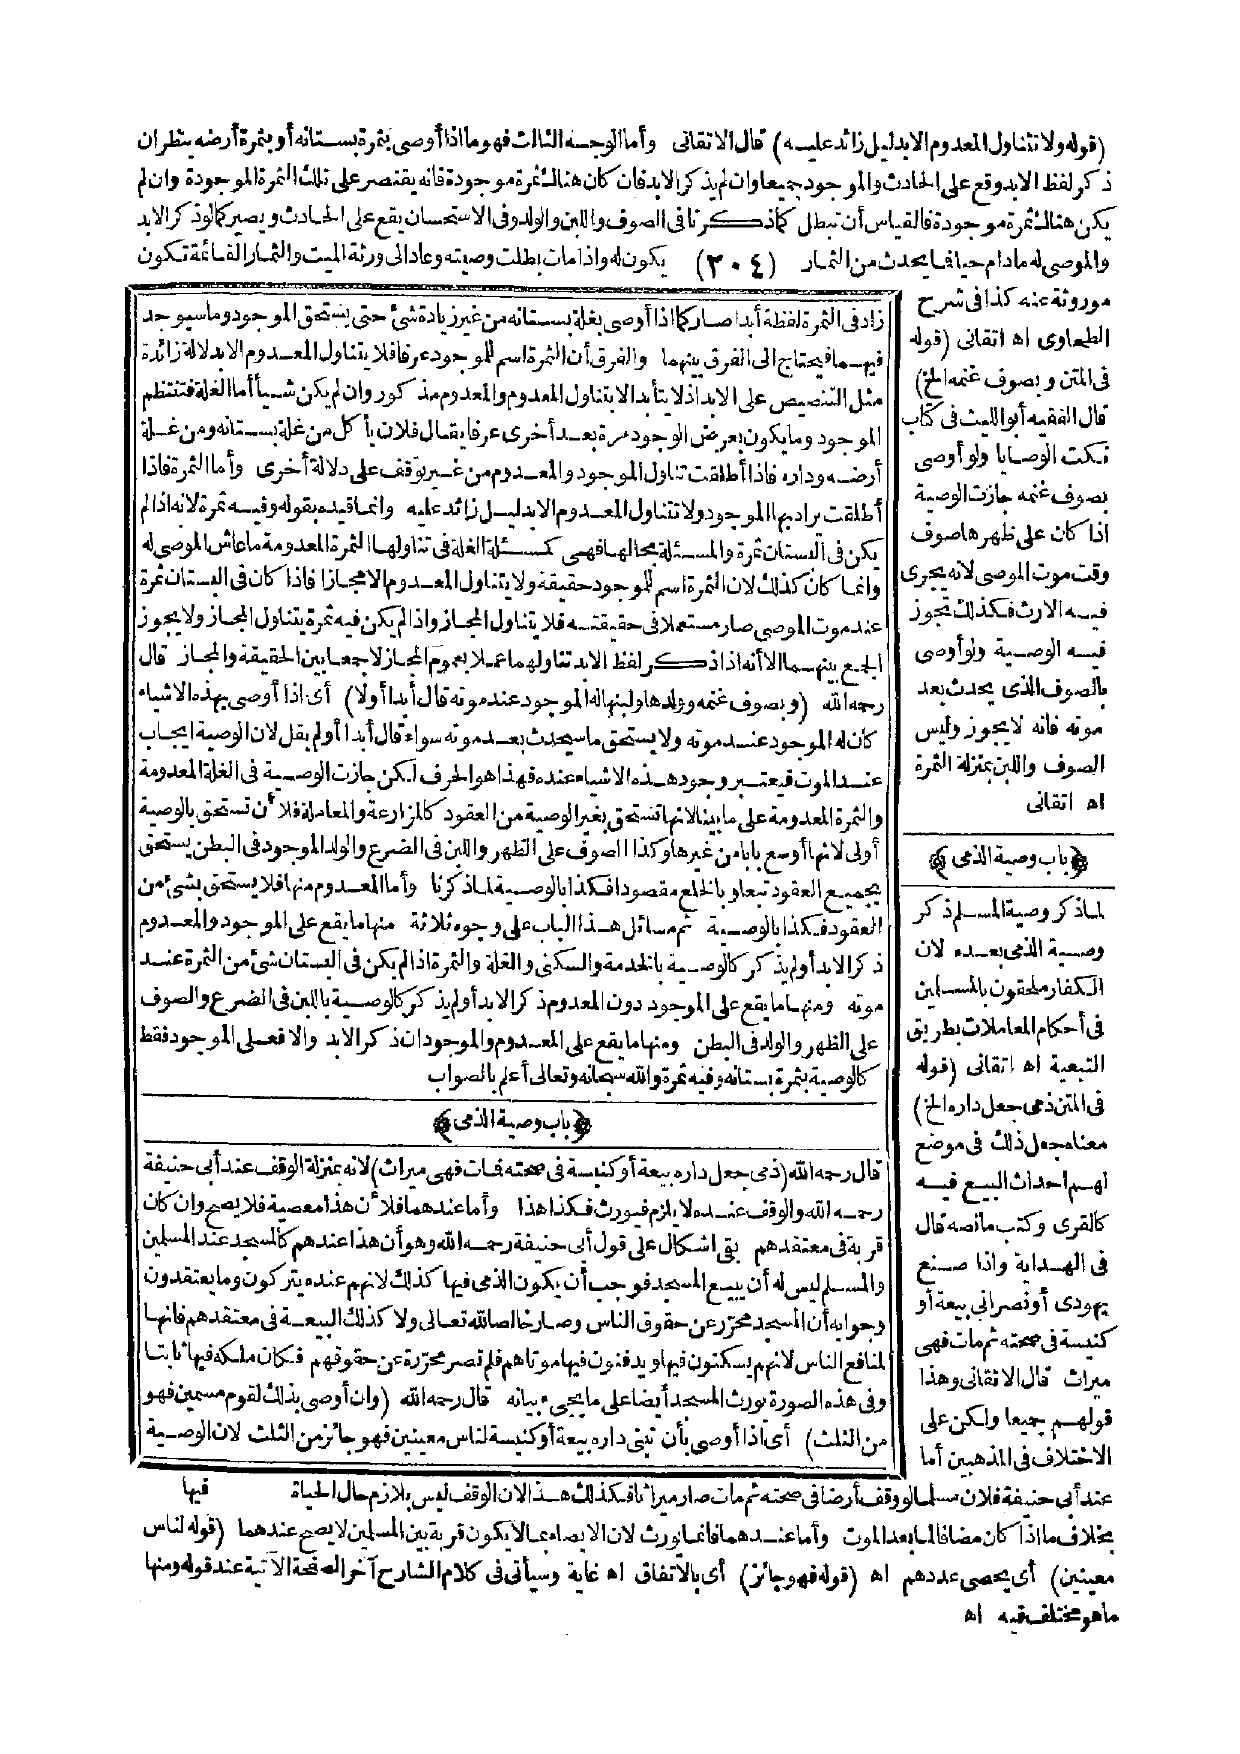 (قوله ولا تتناول المعدوم الا بدليل زائد عليه) قال الاتقانى وأما الوجه الثالث فهو ما اذا أوصى بثمرة بستانه أو بثمرة أرضه ينظر ان
ذكر لفظ الابد وقع على الحادث والموجود جميعا وان لم يذكر الابد فان كان هناك ثمرة موجودة فانه يقتصر على تلك الثمرة الموجودة وان لم
يكن هناك ثمرة موجودة فالقياس أن تبطل كما ذكرنا فى الصوف واللبن والولد وفى الاستحسان يقع على الحادث ويصير كما لو ذكر الابد
والموصى له ما دام حيا فما يحدث من الثمار (٢٠٤) يكون له واذا مات بطلت وصيته وعاد الى ورثة الميت والثمار القائمة تكون
موروثة عنه كذا فى شرح
الطحاوى اه اتقانى (قوله
فى المتن وبصوف غنمه الخ)
قال الفقيه أبو الليث فى كتاب
نكت الوصايا ولو أوصى
بصوف غنمه جازت الوصية
اذا كان على ظهرها صوف
وقت موت الموصى لانه يجرى
فيه الارث فكذلك تجوز
فيه الوصية ولو أوصى
بالصوف الذى يحدث بعد
موته فانه لا يجوز وليس
الصوف واللبن بمنزلة الثمرة
اه اتقانى
﴿باب وصية الذمى﴾
لما ذكر وصية المسلم ذكر
وصية الذمى بعده لان
الكفار ملحقون بالمسلمين
فى أحكام المعاملات بطريق
التبعية اه اتقانى (قوله
فى المتن ذمى جعل داره الخ)
معناه جعل ذلك فى موضع
لهم احداث البيع فيه
كالقرى وكتب ما نصه قال
فى الهداية واذا صنع
يهودى أو نصرانى بيعة أو
كنيسة فى صحته ثم مات فهى
ميراث قال الاتقانى وهذا
قولهم جميعا ولكن على
الاختلاف فى المذهبين أما
زاد فى الثمرة لفظة أبدا صار كما اذا أوصى بغلة بستانه من غير زيادة شئ حتى يستحق الموجود وما سيوجد
فيهما فيحتاج الى الفرق بينهما والفرق أن الثمرة اسم للموجود عرفا فلا يتناول المعدوم الا بدلالة زائدة
مثل التنصيص على الابد اذ لا يتأبد الا بتناول المعدوم والمعدوم مذكور وان لم يكن شيأ أما الغلة فتنتظم
الموجود وما يكون بعرض الوجود مرة بعد أخرى عرفا يقال فلان يأكل من غلة بستانه ومن غلة
أرضه وداره فاذا أطلقت تناول الموجود والمعدوم من غير توقف على دلالة أخرى وأما الثمرة فاذا
أطلقت يراد بها الموجود ولا تتناول المعدوم الا بدليل زائد عليه وانما قيده بقوله وفيه ثمرة لانه اذا لم
يكن فى البستان ثمرة والمسئلة بحالها فهى كمسئلة الغلة فى تناولها الثمرة المعدومة ما عاش الموصى له
وانما كان كذلك لان الثمرة اسم للموجود حقيقة ولا يتناول المعدوم الا مجازا فاذا كان فى البستان ثمرة
عند موت الموصى صار مستعملا فى حقيقته فلا يتناول المجاز واذا لم يكن فيه ثمرة يتناول المجاز ولا يجوز
الجمع بينهما الا أنه اذا ذكر لفظ الابد تناولهما عملا بعموم المجاز لا جمعا بين الحقيقة والمجاز قال
رحمه الله (وبصوف غنمه وولدها ولبنها له الموجود عند موته قال أبدا أولا) أى اذا أوصى بهذه الاشياء
كان له الموجود عند موته ولا يستحق ما سيحدث بعد موته سواء قال أبدا أو لم يقل لان الوصية ايجاب
عند الموت فيعتبر وجود هذه الاشياء عنده فهذا هو الحرف لكن جازت الوصية فى الغلة المعدومة
والثمرة المعدومة على ما بينا لانها تستحق بغير الوصية من العقود كالمزارعة والمعاملة فلأن تستحق بالوصية
أولى لانها أوسع بابا من غيرها وكذا الصوف على الظهر واللبن فى الضرع والولد الموجود فى البطن يستحق
بجميع العقود تبعا وبالخلع مقصودا فكذا بالوصية لما ذكرنا وأما المعدوم منها فلا يستحق بشئ من
العقود فكذا بالوصية ثم مسائل هذا الباب على وجوه ثلاثة منها ما يقع على الموجود والمعدوم
ذكر الابد أو لم يذكر كالوصية بالخدمة والسكنى والغلة والثمرة اذا لم يكن فى البستان شئ من الثمرة عند
موته ومنها ما يقع على الموجود دون المعدوم ذكر الابد أو لم يذكر كالوصية باللبن فى الضرع والصوف
على الظهر والولد فى البطن ومنها ما يقع على المعدوم والموجود ان ذكر الابد والا فعلى الموجود فقط
كالوصية بثمرة بستانه وفيه ثمرة والله سبحانه وتعالى أعلم بالصواب
﴿باب وصية الذمى﴾
قال رحمه الله (ذمى جعل داره بيعة أو كنيسة فى صحته فمات فهى ميراث) لانه بمنزلة الوقف عند أبى حنيفة
رحمه الله والوقف عنده لا يلزم فيورث فكذا هذا وأما عندهما فلأن هذا معصية فلا يصح وان كان
قربة فى معتقدهم بقى اشكال على قول أبى حنيفة رحمه الله وهو أن هذا عندهم كالمسجد عند المسلمين
والمسلم ليس له أن يبيع المسجد فوجب أن يكون الذمى فيها كذلك لانهم عنده يتركون وما يعتقدون
وجوابه أن المسجد محرر عن حقوق الناس وصار خالصا لله تعالى ولا كذلك البيعة فى معتقدهم فانها
لمنافع الناس لانهم يسكنون فيها ويدفنون فيها موتاهم فلم تصر محررة عن حقوقهم فكان ملكه فيها ثابتا
وفى هذه الصورة يورث المسجد أيضا على ما يجىء بيانه قال رحمه الله (وان أوصى بذلك لقوم مسمين فهو
من الثلث) أى اذا أوصى بأن تبنى داره بيعة أو كنيسة لناس معينين فهو جائز من الثلث لان الوصية
فيها
عند أبى حنيفة فلان مسلما لو وقف أرضا فى صحته ثم مات صار ميراثا فكذلك هذا لان الوقف ليس بلازم حال الحياة
بخلاف ما اذا كان مضافا لما بعد الموت وأما عندهما فانما يورث لان الايصاء بما لا يكون قربة بين المسلمين لا يصح عندهما (قوله لناس
معينين) أى يحصى عددهم اه (قوله فهو جائز) أى بالاتفاق اه غاية وسيأتى فى كلام الشارح آخر الصفحة الآتية عند قوله ومنها
ما هو مختلف فيه اه